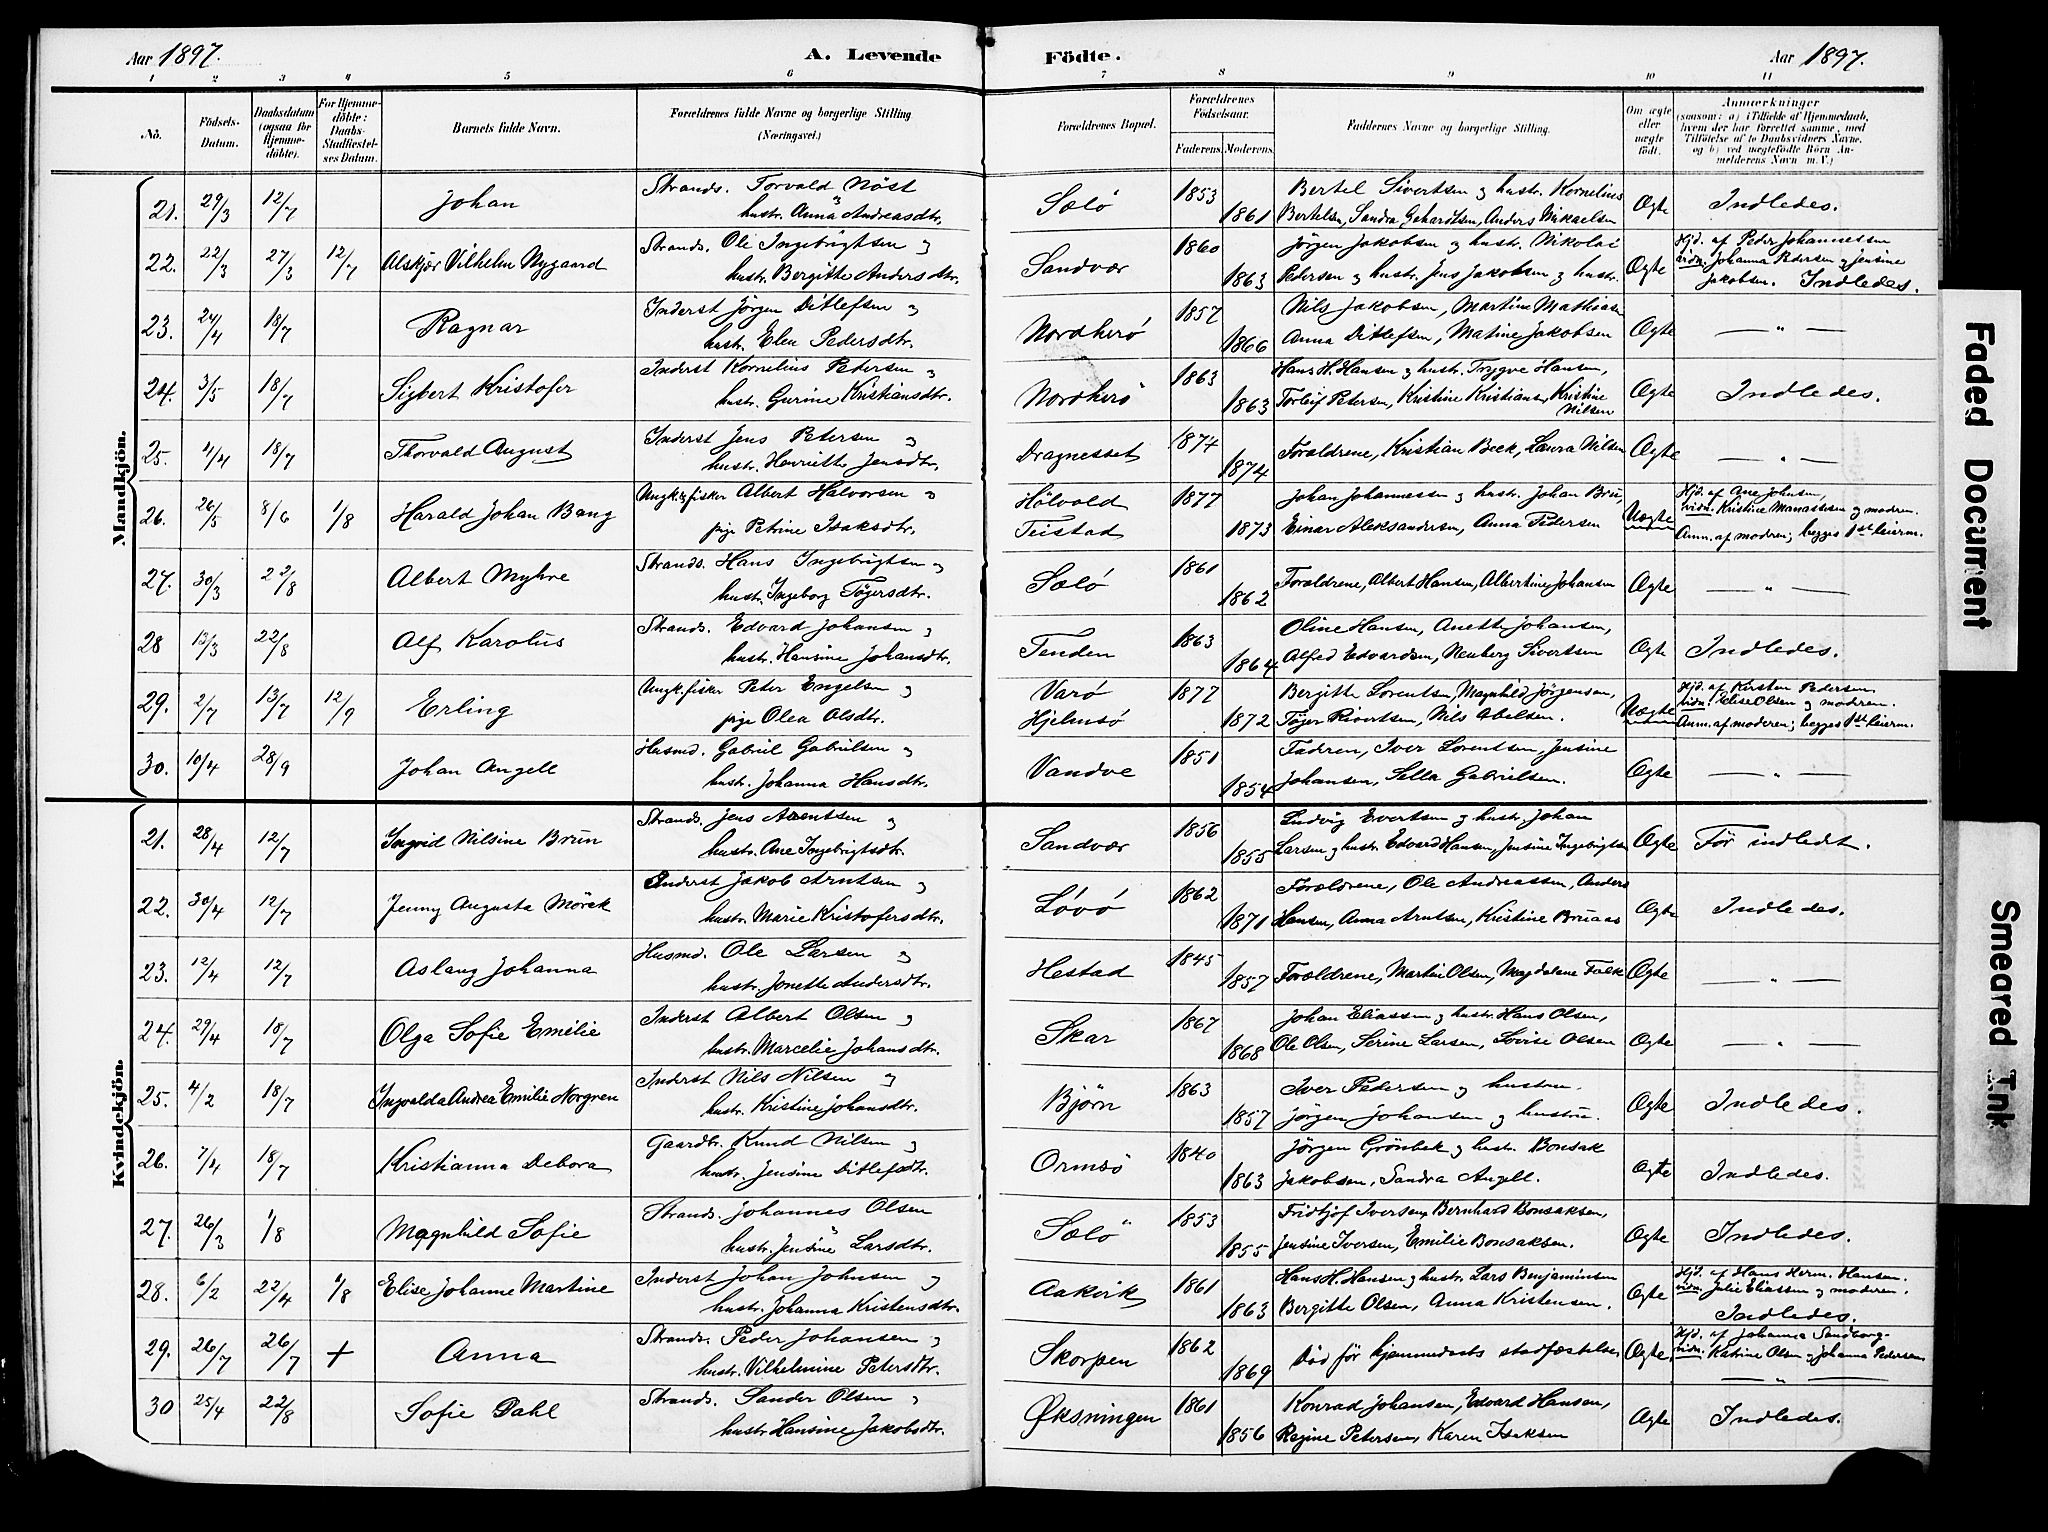 Aar 1897. A. Levende Födte. Aar 1897.
1 2 3 4 5 6 7 8 9 10 11
No. Födsels-Datum. Daabsdatum (ogsaa for Hjemmedöbte). For Hjemmedöbte: Daabs-Stadfæstelses Datum. Barnets fulde Navn. Forældrenes fulde Navne og borgerlige Stilling (Næringsvei.) Forældrenes Bopæl. Forældrenes Födselsaar. Faderens. Moderens. Faddernes Navne og borgerlige Stilling. Om ægte eller uægte födt. Anmærkninger (saasom: a) i Tilfælde af Hjemmedaab, hvem der har forrettet samme, med Tilföielse af to Daabsvidners Navne, og b) ved uægtefödte Börn Anmelderens Navn m. V.)
Mandkjön.
21. 29/3 12/7 Johan Strands. Torvald Nöst Sælö 1853 Bertel Sivertsen og hustr. Kornelius Ægte Indledes.
hustr. Anna Andreasdtr. 1861 Bertelsen, Sandra Gehardtsen, Anders Mikaelsen
22. 22/3 27/3 12/7 Alskjör Vilhelm Nygaard Strands. Ole Ingebrigtsen og Sandvær 1860 Jörgen Jakobsen og hustr. Nikolai Ægte Hjd. af Peder Johannessen
hustr. Bergitte Andersdtr. 1863 Petersen og hustr. Jens Jakobsen og hustr. vidn. Johanna Pedersen og Jensine
Jakobsen. Indledes.
23. 24/4 18/7 Ragnar Inderst Jörgen Ditlefsen og Nordherö 1857 Nils Jakobsen, Martine Mathiasen Ægte — " —
hustr. Elen Pedersdtr. 1866 Anna Ditlefsen, Matine Jakobsen
24. 3/5 18/7 Sigbert Kristofer Inderst Kornelius Petersen og Nordherö 1863 Hans H. Hansen og hustr. Trygve Hansen, Ægte Indledes.
hustr. Gurine Kristiansdtr. 1863 Torleif Petersen, Kristine Kristiansen, Kristine Nilsen
25. 4/4 18/7 Thorvald August Inderst Jens Petersen og Dragnesset 1874 Forældrene, Kristian Beck, Laura Nilsen Ægte — " —
hustr. Henriette Jensdtr. 1874
26. 26/5 8/6 1/8 Harald Johan Bang Ungk. & fisker Albert Halvorsen og Hölvald 1877 Johan Johannessen og hustr. Johan Bru, Uægte Hjd. af Ane Johnsen,
pige Petrine Isaksdtr. Teistad 1873 Einar Aleksandersen, Anna Pedersen vidn. Kristine Manassesen og moderen.
Anm. af moderen; begges 1st leierm.
27. 30/3 22/8 Albert Myhre Strands. Hans Ingebrigtsen og Sælö 1861 Forældrene, Albert Hansen, Albertine Johansen Ægte — " —
hustr. Ingeborg Tögersdtr. 1862
28 13/3 22/8 Alf Karolus Strands. Edvard Johansen og Tenden 1863 Oline Hansen, Anette Johansen, Ægte Indledes.
hustr. Hansine Johansdtr. 1864 Alfred Edvardsen, Neuberg Sivertsen
29. 2/7 13/7 12/9 Erling Ungk. fisker Peter Engelsen og Varö 1877 Bergitte Lorentsen, Magnhild Jörgensen, Uægte Hjd. af Kirsten Pedersen
pige Olea Olsdtr. Hjelmsö 1872 Töger Sivertsen, Nils Abelsen. vidn. Elise Olsen og moderen.
Anm. af moderen; begges 1st leierm.
30. 10/4 28/9 Johan Angell Husmd. Gabriel Gabrielsen og Vandve 1851 Faderen, Iver Lorentsen, Jensine Ægte — " —
hustr. Johanna Hansdtr. 1854 Johansen, Sella Gabrielsen.
Kvindekjön.
21. 28/4 12/7 Ingrid Nilsine Brun Strands. Jens Arentsen og Sandvær 1856 Ludvig Evertsen og hustr. Johan Ægte Før indledet.
hustr. Ane Ingebrigtsdtr. 1855 Larsen og hustr. Edvard Hansen, Jensine Ingebrigtsen
22. 30/4 12/7 Jenny Augusta Mörck Inderst Jakob Arntsen og Lövö 1862 Forældrene, Ole Andreassen, Anders Ægte Indledes.
hustr. Marie Kristofersdtr. 1871 Hansen, Anna Arntsen, Kristine Bruaas
23. 12/4 12/7 Aslaug Johanna Husmd. Ole Larsen og Hestad 1845 Forældrene, Martin Olsen, Magdalene Falk Ægte — " —
hustr. Jonette Andersdtr. 1857
24. 29/4 18/7 Olga Sofie Emilie Inderst Albert Olsen og Skar 1867 Johan Eliassen og hustr. Hans Olsen, Ægte — " —
hustr. Marcelie Johansdtr. 1868 Ole Olsen, Serine Larsen, Lovise Olsen
25. 4/2 18/7 Ingvalda Andrea Emilie Norgren Inderst Nils Nilsen og Bjørn 1863 Iver Pedersen og hustru. Ægte Indledes.
hustr. Kristine Johansdtr. 1857 Jørgen Johansen og hustru.
26. 7/4 18/7 Kristianna Debora Gaardbr. Knud Nilsen og Ormsö 1840 Jörgen Grönbek og hustr. Bonsak Ægte Indledes.
hustr. Jensine Ditlefsdtr. 1863 Jakobsen, Sandra Angell.
27. 26/3 1/8 Magnhild Sofie Strands. Johannes Olsen Sælö 1853 Fridtjof Iversen, Bernhard Bonsaksen, Ægte Indledes.
hustr. Jensine Larsdtr. 1855 Jensine Iversen, Emilie Bonsaksen.
28. 6/2 22/4 1/8 Elise Johanne Martine Inderst Johan Johnsen og Aakvik 1861 Hans H. Hansen og hustr. Lars Benjaminsen Ægte Hjd. af Hans Herm. Hansen.
hustr. Johanna Kristensdtr. 1863 Bergitte Olsen, Anna Kristensen. vidn. Julie Eliassen og moderen.
Indledes.
29. 26/7 26/7 + Anna Strands. Peder Johansen og Skorpen 1862 Död för hjemmedaabs stadfæstelse Ægte Hjd. af Johanna Sandborg-
hustr. Vilhelmine Petersdtr. 1869 vidn. Katrine Olsen og Johanna Pedersen
— " —
30 25/4 22/8 Sofie Dahl Strands. Sander Olsen og Øksningen 1861 Konrad Johansen, Edvard Hansen, Ægte Indledes.
hustr. Hansine Jakobsdtr. 1856 Regine Petersen, Karen Isaksen
Faded Document
Smeared Ink